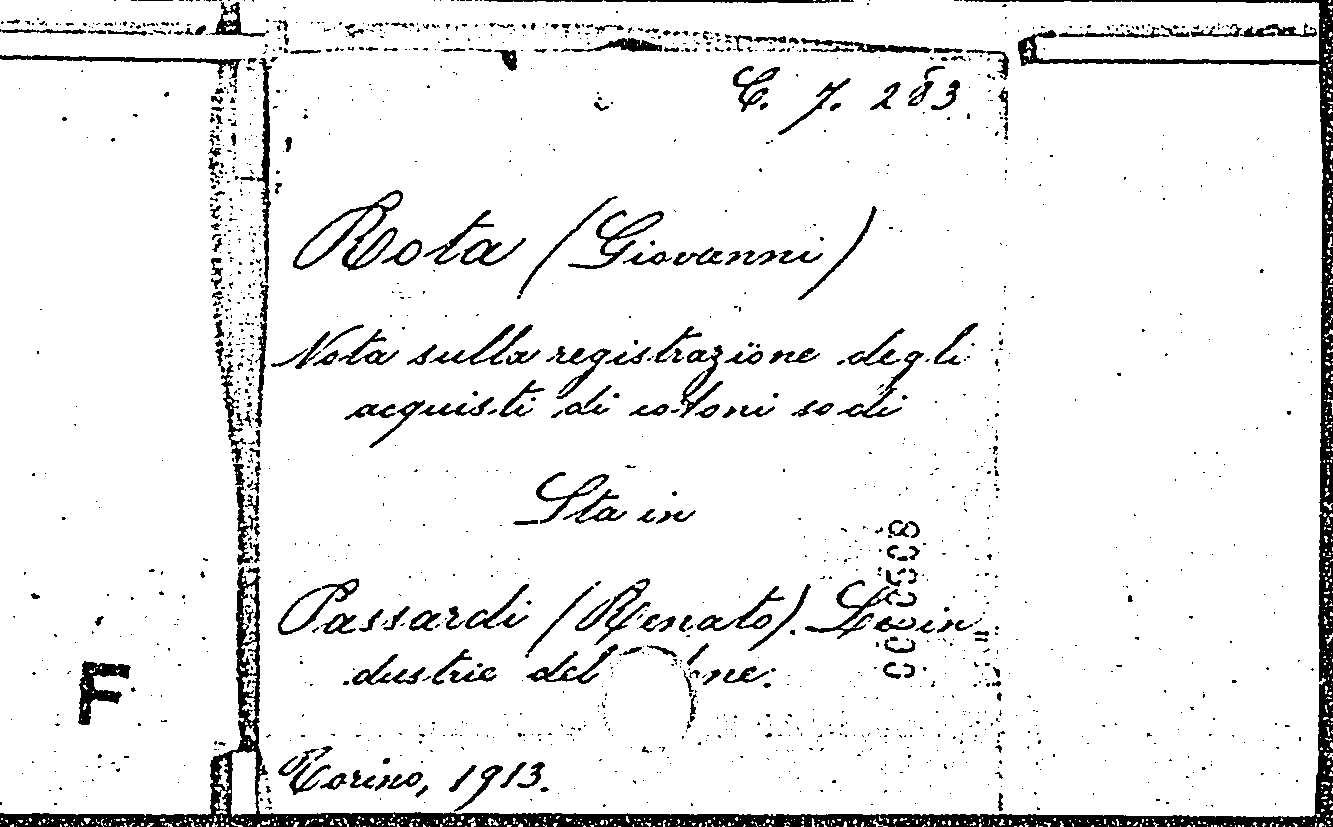 C. 7. 283
Rota (Giovanni)
Nota sulla registrazione degli
acquisti di cotoni sodi
Sta in
Passardi (Renato). Le in
dustrie del ne.
Torino, 1913.
F